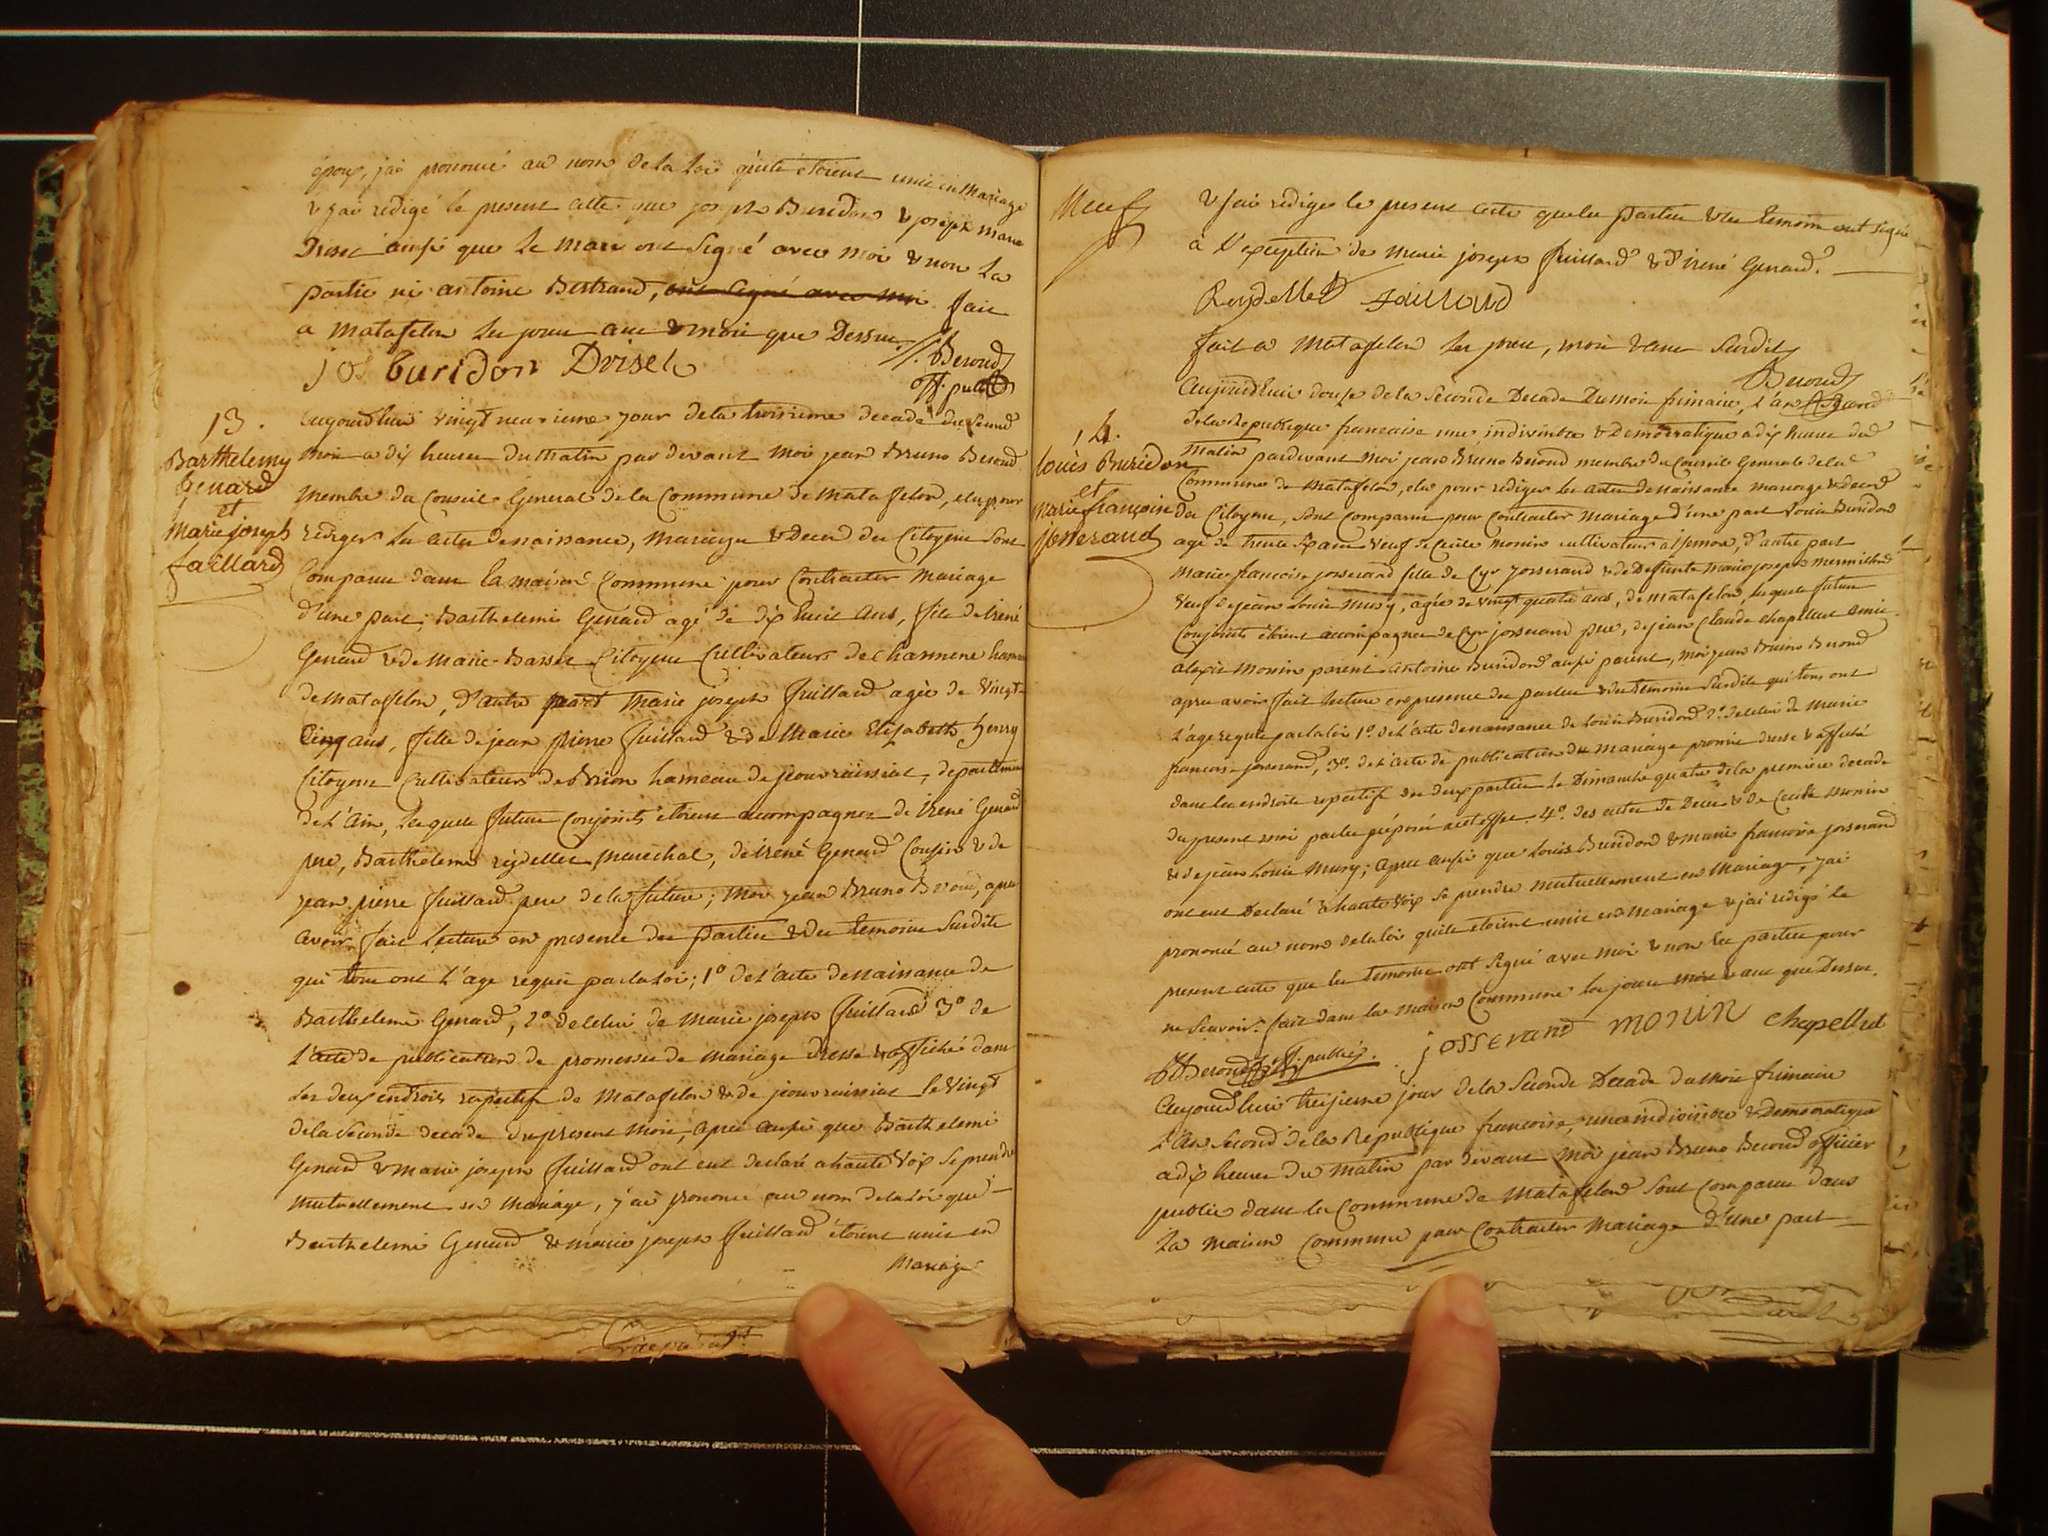 époux, j'ai prononcé au nom de la Loi qu'ils étoient unis en Mariage
& j'ai redigé le present acte que joseph Buridon & joseph marie
Drisel ausi que Le Maire ont Signé avec moi & non La
partie ni antoine Bertrand, ont Signé avec moi fait
a Matafelon Les jours an & mois que Dessus.
jos buridon Drisel
Beroud
off. public
13.
Barthelemy
Genard
et
Marie joseph
faillard
aujourd'huis vingt neuvieme jour de la troisieme decade du Second
mois a dix heures du Matin par devant Moi jean Bruno Beroud
Membre du Conseil General de la Commune de Matafelon, elu pour
rediger Les actes de naissance, Mariage & Deces des Citoyens Sont
Comparus dans la maison Commune pour Contracter Mariage
d'une part, Barthelemi Genard agé de dix huit ans, fils de irené
Genard & de Marie Basset Citoyens Cultivateurs de Charmene hameau
de Matafelon, d'autre part Marie joseph fuillard agée de vingt
Cinq ans, fille de jean pierre fuillard & de Marie Elisabeth henry
Citoyens Cultivateurs de Brion hameau de jeouvraissiat, departement
de L'Ain, Lesquels futurs Conjoints étoient acompagnez de irené Genard
pere, Barthelemi reydellet Marechal, de irené Genard Cousin & de
jean pierre fuillard pere de la future; Moi jean Bruno Beroud, apres
avoir fait Lecture en presence des parties & des temoins Susdits
qui tous ont L'age requis par la Loi; 1o de L'acte de naissance de
Barthelemi Genard, 2o de celui de Marie joseph fuillard 3o de
L'acte de publication de promesses de Mariage dressé & affiché dans
Les deux endroits respectifs de Matafelon & de jeouvraissiat le vingt
de la Seconde decade du present Mois, apres ausi que Barthelemi
Genard & Marie joseph fuillard ont eut declaré a haute voix Se prendre
Mutuellement en Mariage, j'ai prononcé au nom de la Loi que
Barthelemi Genard & Marie joseph fuillard étoient unis en
Mariage
Neuf
& j'ai rediger le present acte que les parties & les temoins ont signé
à L'exception de Marie joseph fuillard & d'irené Genard.
Reydellet faillard
fait a Matafelon Les jours, mois & an Susdits
Beroud
14.
Louis Buridon
et
Marie françoise
josserand
aujourd'huis douse de la Seconde Decade Du mois frimaire, L'an Second
de la Republique francaise une indivisible & Democratique a dix heures du
Matin pardevant Moi jean Bruno Beroud membre du Conseil General de la
Commune de Matafelon, elu pour rediger Les actes de Naissance mariage & deces
des Citoyens, Sont Comparus pour Contracter Mariage d'une part Louis Buridon
agé de trente Six ans veuf de Cecile Monin cultivateur, d'autre part
Marie francoise josserand fille de Cyr josserand & de Defunte Marie joseph
veuf de jean Louis Musy, agée de vingt quatre ans, de Matafelon Lesquels futurs
Conjoints étoient acompagnez de Cyr josserand pere, de jean Claude chapellut amis
alexis Monin parent antoine Buridon ausi parent, Moi jean Bruno Beroud
apres avoir fait Lecture en presence des parties & des temoins Susdits qui tous ont
L'age requis par la Loi 1o. de L'acte de naissance de Louis Buridon 2o. de celui de Marie
francoise josserand, 3o. de L'acte de publication de Mariage promis dressé & affiché
dans les endroits respectifs des deux parties Le Dimanche quatre de la premiere decade
du present mois par les préposés 4o. des actes de Deces de Cecile Monin
& de jean Louis Musy; apres ausi que Louis Buridon & Marie francoise josserand
ont eut Declaré a haute voix Se prendre Mutuellement en Mariage, j'ai
prononcé au nom de la Loi qu'ils étoient unis en Mariage & j'ai redigé le
present acte que les temoins ont Signé avec Moi & non les parties pour
ne Scavoir. fait dans la Maison Commune les jours mois & an que Dessus.
Beroud off. public. josserand Monin chapellut
aujourd'huis treizieme jour de la Seconde Decade du Mois frimaire
L'an Second de la Republique francoise, une indivisible & democratique
a dix heures du Matin par devant Moi jean Bruno Beroud officier
public dans la Commune de Matafelon Sont Comparus dans
La Maison Commune pour Contracter Mariage d'une part